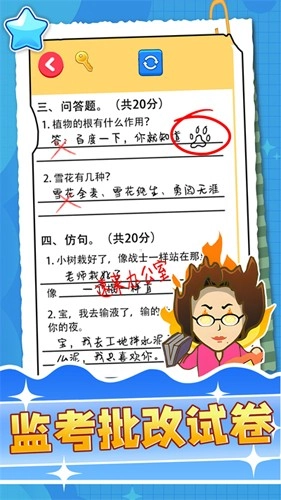 三、问答题。（共20分）
1. 植物的根有什么作用？
答：百度一下，你就知道
2. 雪花有几种？
雪花全麦、雪花纯生、勇闯天涯
四、仿句。（共20分）
1. 小树栽好了，像战士一样站在那
老师栽
像 一样 直
办公室
2. 宝，我去输液了，输的
你的夜。
宝，我去工地拌水泥，
么泥，我只喜欢你。
监考批改试卷